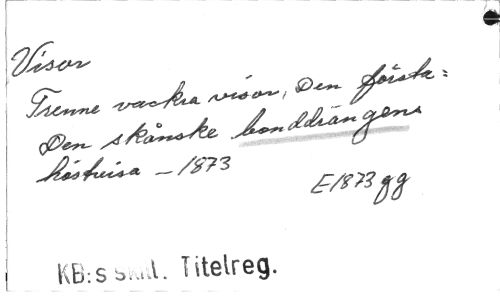 Visor
Trenne vackra visor, Den första:
Den skånske bonddrängens
höstvisa - 1873
E1873 gg
KB:s skill. Titelreg.